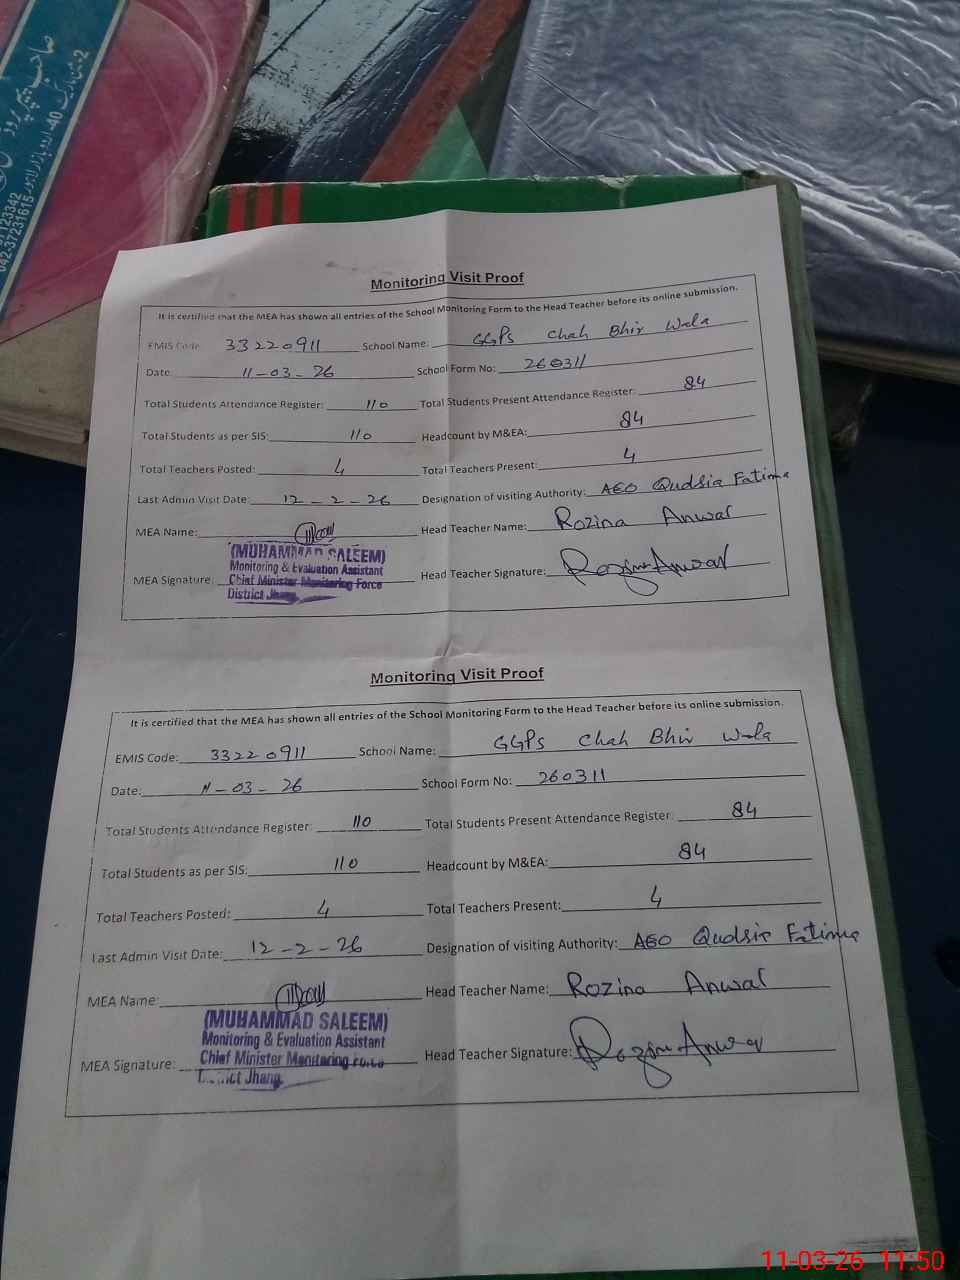 صاحب پیپر
40-اردو بازار لاہور
042-37231615
Monitoring Visit Proof
It is certified that the MEA has shown all entries of the School Monitoring Form to the Head Teacher before its online submission.
EMIS Code: 33220911 School Name: GGPS Chah Bhir Wala
Date 11-03-26 School Form No: 260311
Total Students Attendance Register: 110 Total Students Present Attendance Register: 84
Total Students as per SIS: 110 Headcount by M&EA: 84
Total Teachers Posted: 4 Total Teachers Present: 4
Last Admin Visit Date: 12-2-26 Designation of visiting Authority: AEO Qudsia Fatima
MEA Name: Head Teacher Name: Rozina Anwar
(MUHAMMAD SALEEM)
Monitoring & Evaluation Assistant
MEA Signature: Chief Minister Monitoring Force Head Teacher Signature: Rozina Anwar
District Jhang
Monitoring Visit Proof
It is certified that the MEA has shown all entries of the School Monitoring Form to the Head Teacher before its online submission.
EMIS Code: 33220911 School Name: GGPS Chah Bhir Wala
Date: 11-03-26 School Form No: 260311
Total Students Attendance Register: 110 Total Students Present Attendance Register: 84
Total Students as per SIS: 110 Headcount by M&EA: 84
Total Teachers Posted: 4 Total Teachers Present: 4
Last Admin Visit Date: 12-2-26 Designation of visiting Authority: AEO Qudsia Fatima
MEA Name: Head Teacher Name: Rozina Anwar
(MUHAMMAD SALEEM)
Monitoring & Evaluation Assistant
MEA Signature: Chief Minister Monitoring Force Head Teacher Signature: Rozina Anwar
District Jhang
11-03-26 11:50